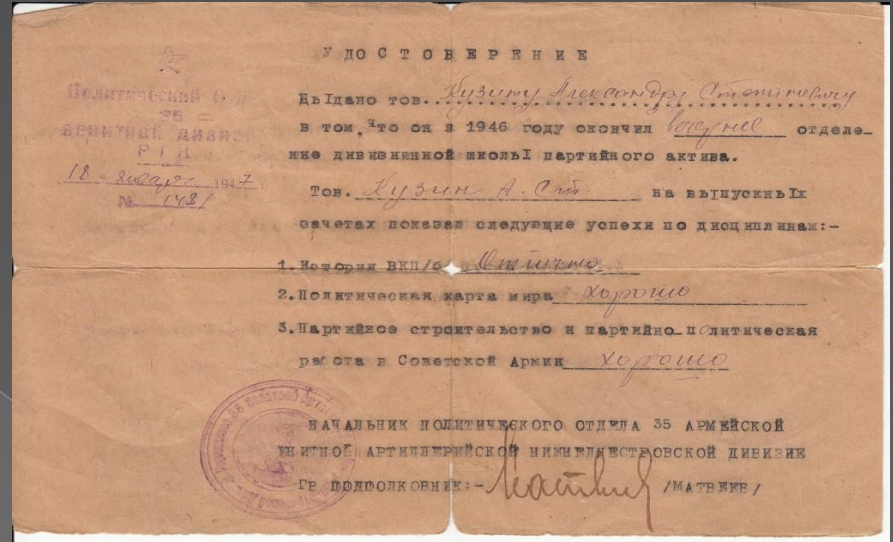 УДОСТОВЕРЕНИЕ
Политический
35
зенитной дивиз
Р Г К
18 января 1947
№ 1431
Выдано тов. Кузину Александру Степановичу
в том, что он в 1946 году окончил вечернее отделе-
ние дивизиенной школы партийного актива.
Тов. Кузин А. Ст. на выпускных
зачетах показал следующие успехи по дисциплинам:-
1. История ВКП/б Отлично
2. Политическая карта мира хорошо
3. Партийное строительство и партийно_политическая
работа в Советской Армии хорошо
НАЧАЛЬНИК ПОЛИТИЧЕСКОГО ОТДЕЛА 35 АРМЕЙСКОЙ
ЕНИТНОЙ АРТИЛЛЕРИЙСКОЙ НИЖНЕДНЕСТРОВСКОЙ ДИВИЗИЕ
ГВ ПОДПОЛКОВНИК:- /МАТВЕЕВ/